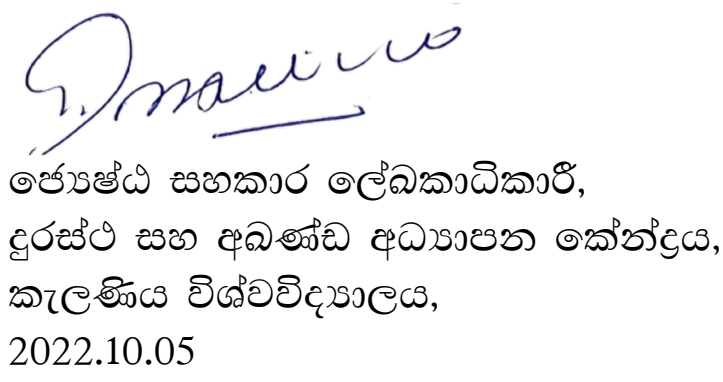 ජ්‍යෙෂ්ඨ සහකාර ලේඛකාධිකාරී,
දුරස්ථ සහ අඛණ්ඩ අධ්‍යාපන කේන්ද්‍රය,
කැලණිය විශ්වවිද්‍යාලය,
2022.10.05